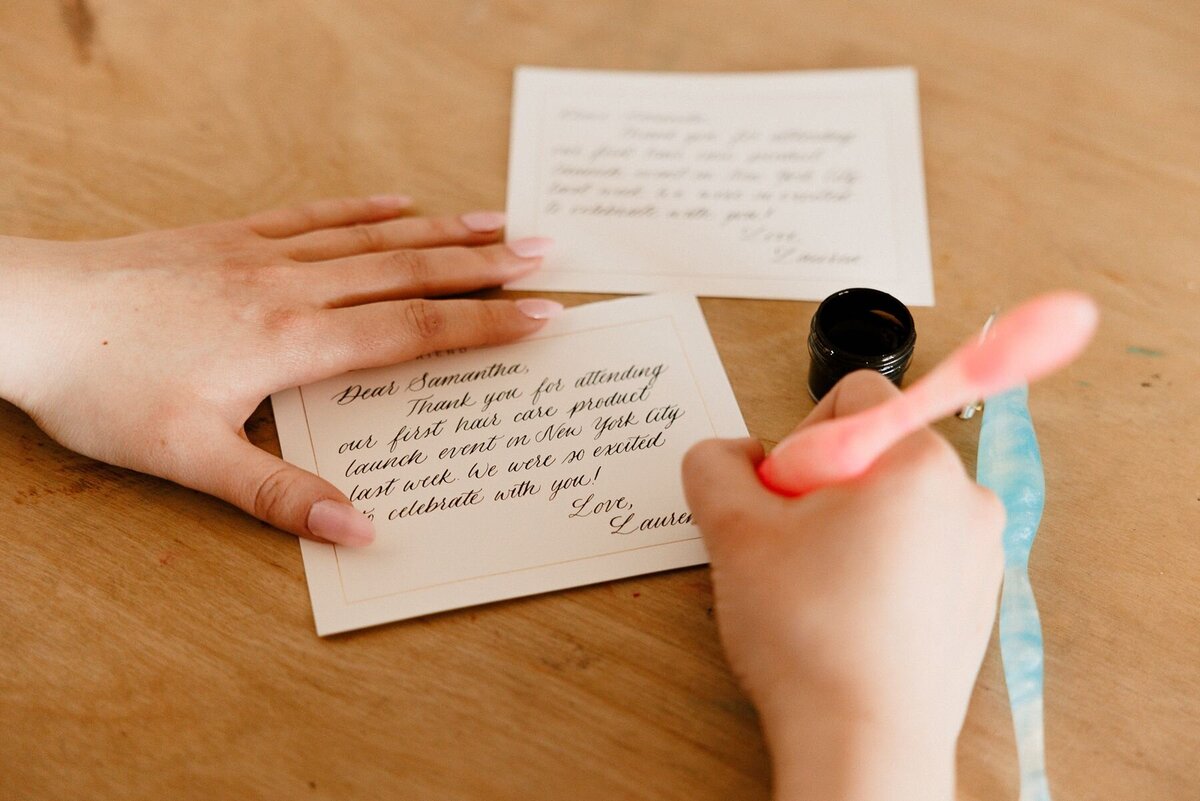 Dear Samantha,
Thank you for attending
our first hair care product
launch event in New York City
last week. We were so excited
to celebrate with you!
Love,
Lauren
Thank you for attending
our first hair care product
launch event in New York City
last week. We were so excited
to celebrate with you!
Love,
Lauren